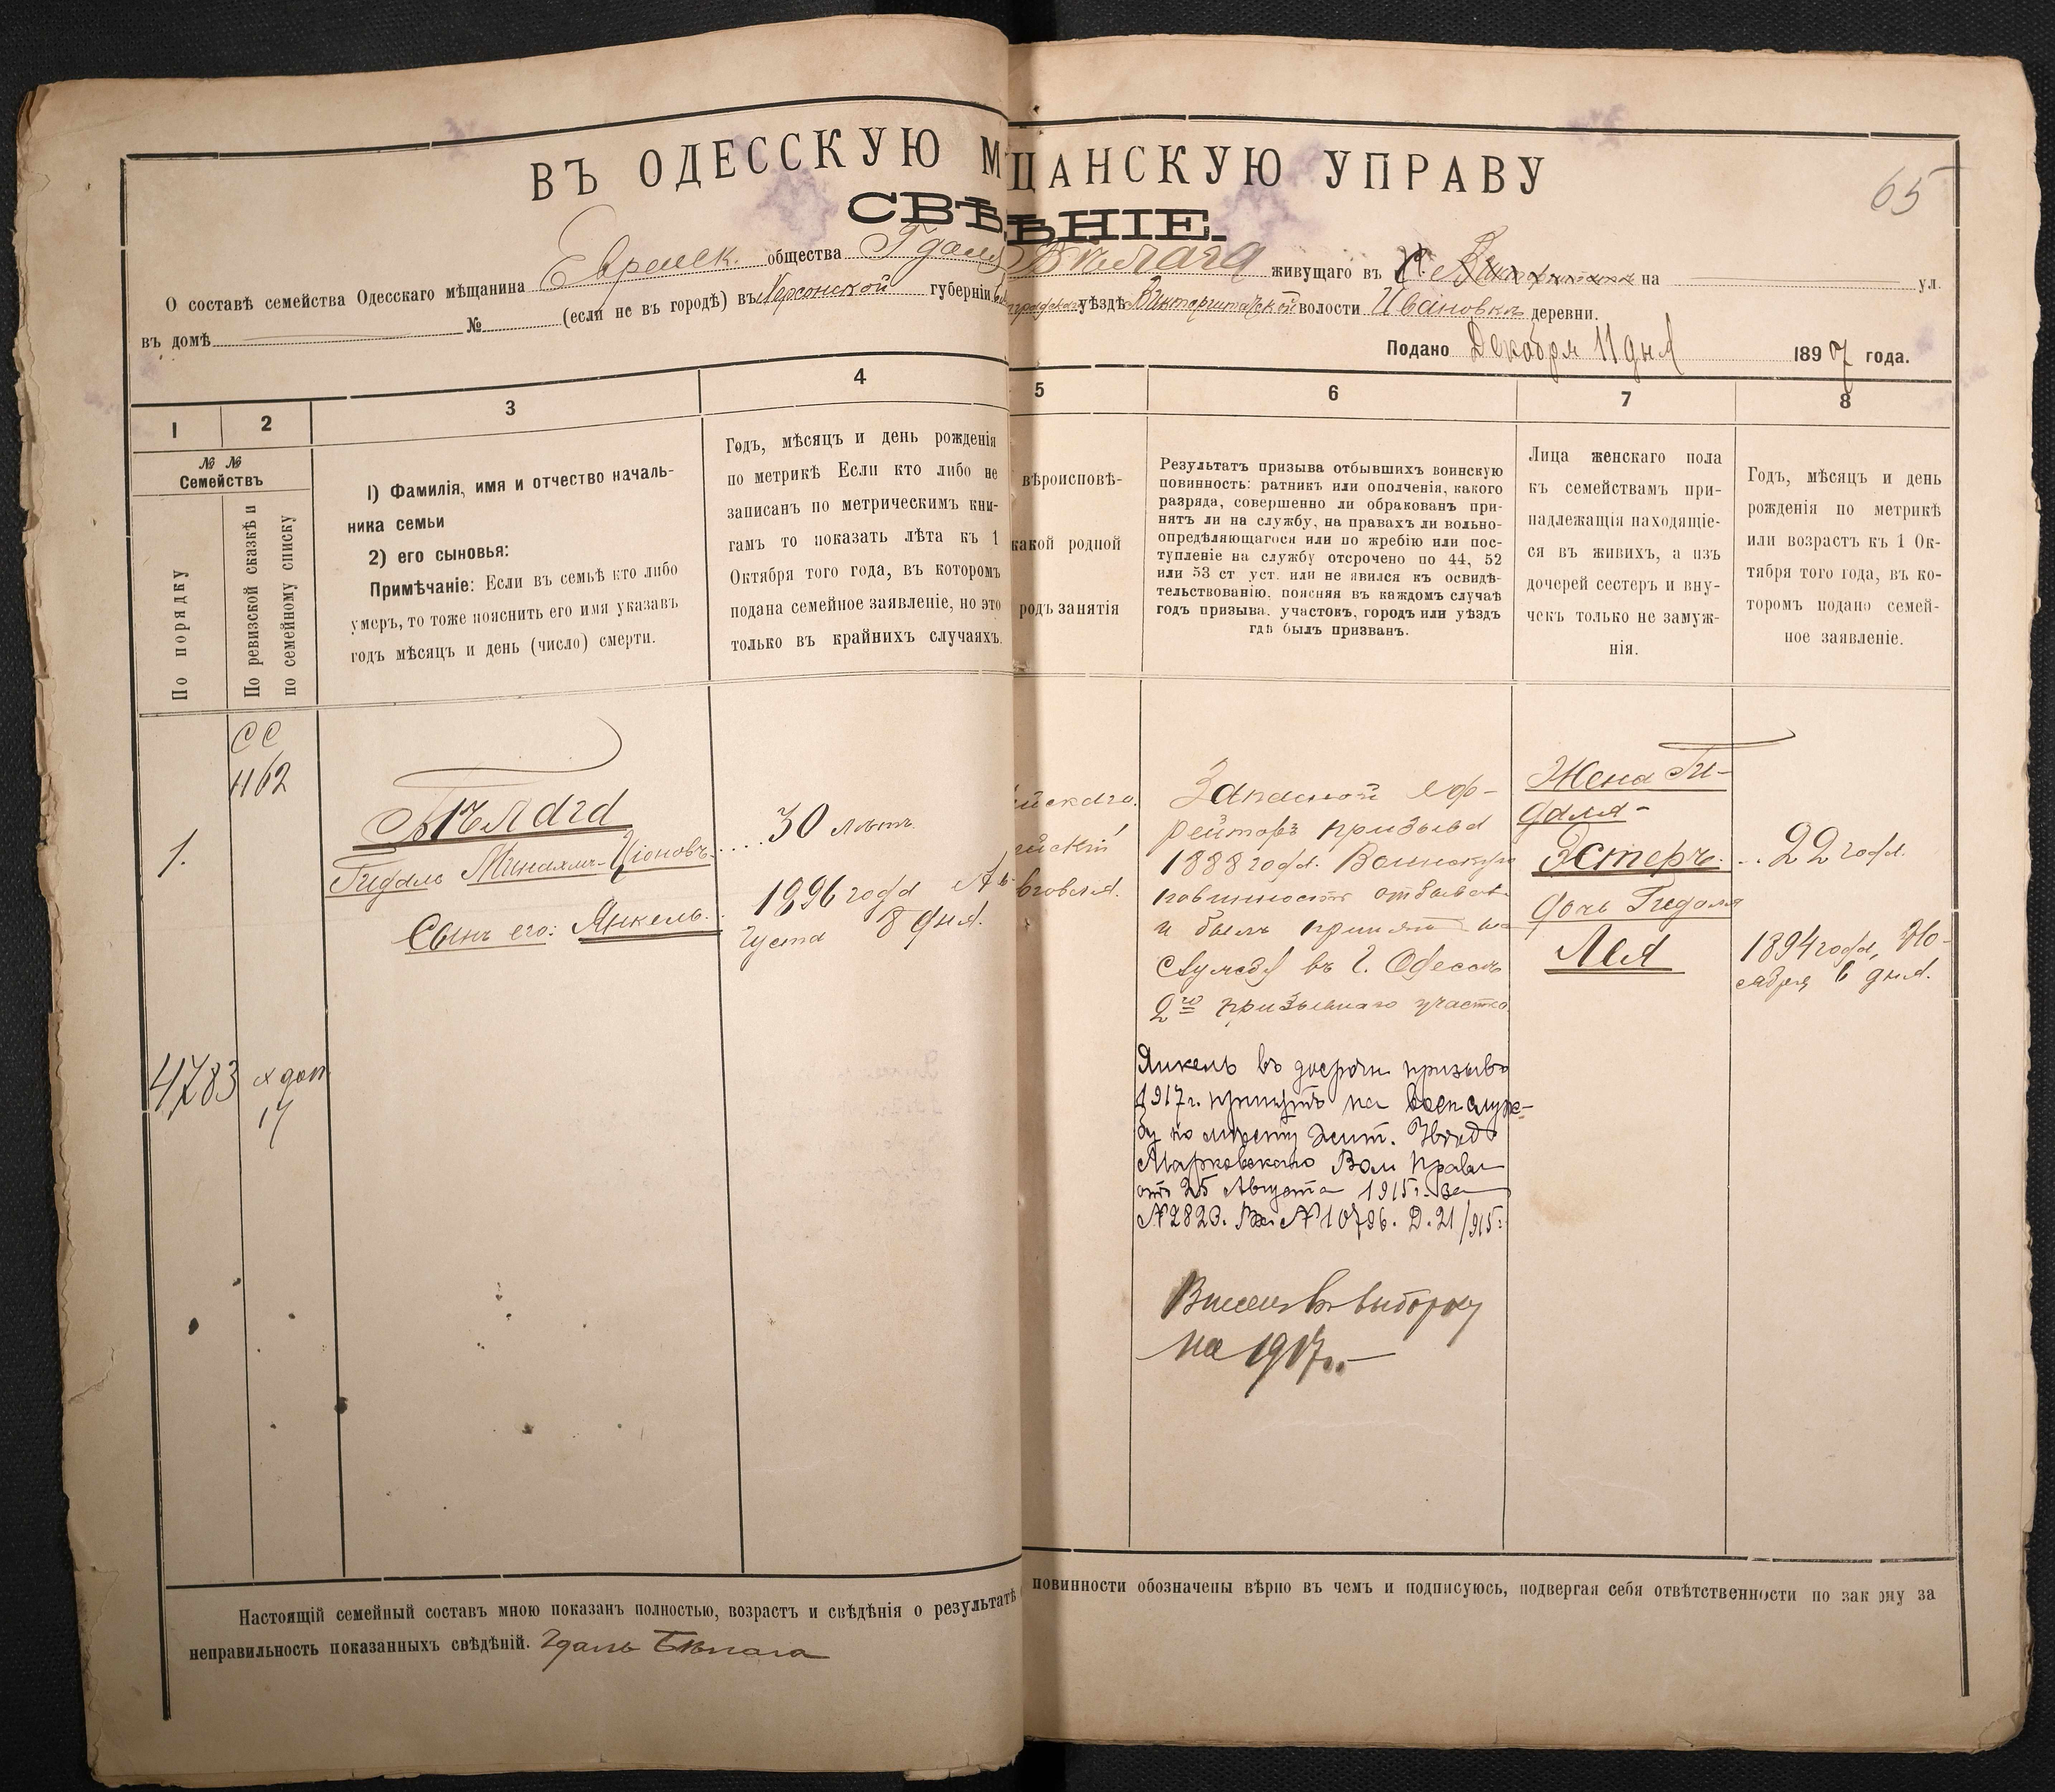 ВЪ ОДЕССКУЮ М ЩАНСКУЮ УПРАВУ
65
СВѢ ѢНІЕ.
О составѣ семейства Одесскаго мѣщанина Евреиск. общества Гдаль Бѣлага живущаго въ на ул.
въ домѣ № (если не въ городѣ) въ Херсонской губерніи уѣздѣ волости Ивановкѣ деревни.
Подано Декабря 11 дня 1897 года.
1 2 3 4 5 6 7 8
№ №
Семействъ
По порядку
По ревизской сказкѣ и
по семейному списку
1) Фамилія, имя и отчество началь-
ника семьи
2) его сыновья:
Примѣчаніе: Если въ семьѣ кто либо
умеръ, то тоже пояснить его имя указавъ
годъ мѣсяцъ и день (число) смерти.
Годъ, мѣсяцъ и день рожденія
по метрикѣ Если кто либо не
записанъ по метрическимъ кни-
гамъ то показать лѣта къ 1
Октября того года, въ которомъ
подана семейное заявленіе, но это
только въ крайнихъ случаяхъ.
вѣроисповѣ-
какой родной
родъ занятія
Результатъ призыва отбывшихъ воинскую
повинность: ратникъ или ополченія, какого
разряда, совершенно ли обракованъ при-
нятъ ли на службу, на правахъ ли вольно-
опредѣляющагося или по жребію или пос-
тупленіе на службу отсрочено по 44, 52
или 53 ст уст. или не явился къ освидѣ-
тельствованію, поясняя въ каждомъ случаѣ
годъ призыва, участокъ, городъ или уѣздъ
гдѣ былъ призванъ.
Лица женскаго пола
къ семействамъ при-
надлежащія находящіе-
ся въ живихъ, а изъ
дочерей сестеръ и вну-
чекъ только не замуж-
нія.
Годъ, мѣсяцъ и день
рожденія по метрикѣ
или возрастъ къ 1 Ок-
тября того года, въ ко-
торомъ подано семей-
ное заявленіе.
1.
СС
462
Бѣлага
Гидаль Минахмъ-Ціоновъ
Сынъ его: Янкель.
30 лѣтъ
1896 года Ав-
густа 8 дня.
йскаго.
ейскій
рговля.
Запасной еф-
рейторъ призыва
1888 года. Воинскую
повинность отбывалъ
и былъ принятъ на
службу въ г. Одессѣ
2го призывнаго участка
Жена Ги-
даля-
Эстеръ.
дочь Гидаля
Лея
22 года.
1894 года, Но-
ября 6 дня.
4783
х доп
17
Янкель въ досрочн призывѣ
1917г. принятъ на Воен служ-
бу по мѣсту жит. Увѣд
Марковскаго Вол Правл
отъ 25 Августа 1915г. за
№2823. Вх №10796. Д. 21/915г.
Внесен въ выборку
на 1917г.
Настоящій семейный составъ мною показанъ полностью, возрастъ и свѣдѣнія о результатѣ повинности обозначены вѣрно въ чемъ и подписуюсь, подвергая себя отвѣтственности по закону за
неправильность показанныхъ свѣдѣній. Гдаль Бѣлага